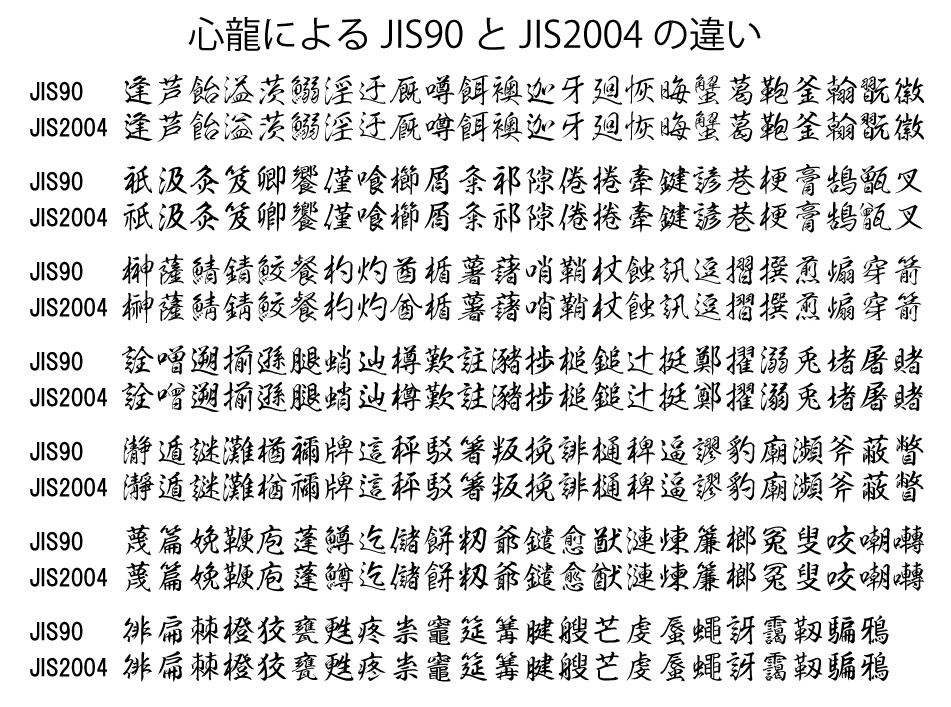 心龍による JIS90 と JIS2004 の違い
JIS90 逢芦飴溢茨鰯淫迂厩噂餌襖迦牙廻恢晦蟹葛鞄釜翰翫徽
JIS2004 逢芦飴溢茨鰯淫迂厩噂餌襖迦牙廻恢晦蟹葛鞄釜翰翫徽
JIS90 祇汲灸笈卿饗僅喰櫛屑粂祁隙倦捲牽鍵諺巷梗膏鵠甑叉
JIS2004 祇汲灸笈卿饗僅喰櫛屑粂祁隙倦捲牽鍵諺巷梗膏鵠甑叉
JIS90 榊薩鯖錆鮫餐杓灼酋楯薯藷哨鞘杖蝕訊逗摺撰煎煽穿箭
JIS2004 榊薩鯖錆鮫餐杓灼酋楯薯藷哨鞘杖蝕訊逗摺撰煎煽穿箭
JIS90 詮噌遡揃遜腿蛸辿樽歎註瀦捗槌鎚辻挺鄭擢溺兎堵屠賭
JIS2004 詮噌遡揃遜腿蛸辿樽歎註瀦捗槌鎚辻挺鄭擢溺兎堵屠賭
JIS90 瀞遁謎灘楢禰牌這秤駁箸叛挽誹樋稗逼謬豹廟瀕斧蔽瞥
JIS2004 瀞遁謎灘楢禰牌這秤駁箸叛挽誹樋稗逼謬豹廟瀕斧蔽瞥
JIS90 蔑篇娩鞭庖蓬鱒迄儲餅籾爺鑓愈猷漣煉簾榔冤叟咬嘲囀
JIS2004 蔑篇娩鞭庖蓬鱒迄儲餅籾爺鑓愈猷漣煉簾榔冤叟咬嘲囀
JIS90 徘扁棘橙狡甕甦疼祟竈筵篝腱艘芒虔蜃蠅訝靄靱騙鴉
JIS2004 徘扁棘橙狡甕甦疼祟竈筵篝腱艘芒虔蜃蠅訝靄靱騙鴉